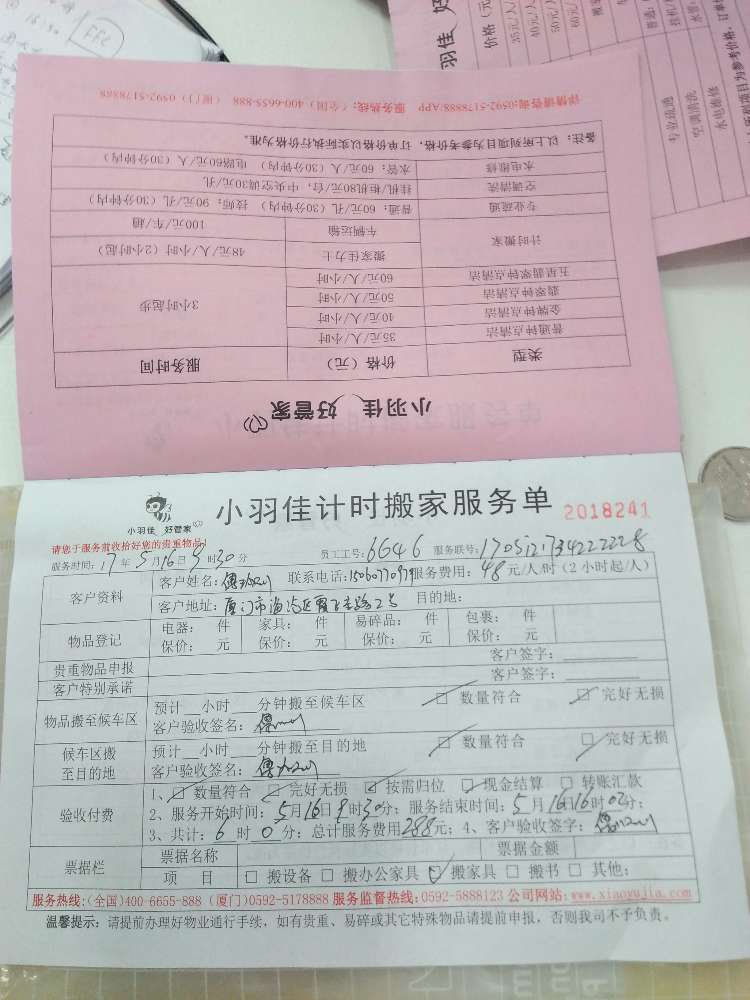 详情请咨询:0592-5178888/APP 服务热线:(全国)400-6655-888 (厦门)0592-5178888
备注:以上所列项目为参考价格,订单价格以实际执行价格为准。
水电维修 水管:60元/人(30分钟内) 电路60元/人(30分钟内)
空调清洗 挂机/柜机80元/台,中央空调30元/孔
专业疏通 普通:60元/孔(30分钟内) 技师:90元/孔(30分钟内)
计时搬家 车辆运输 100元/车/趟
搬家佳力士 48元/人/小时(2小时起)
五星翡翠钟点清洁 60元/人/小时 3小时起步
翡翠钟点清洁 50元/人/小时
金牌钟点清洁 40元/人/小时
普通钟点清洁 35元/人/小时
类型 价格(元) 服务时间
小羽佳 好管家
小羽佳 好管家
小羽佳计时搬家服务单 2018241
请您于服务前收拾好您的贵重物品!
服务时间:17年5月16日 时30分 员工工号:6646 服务联号:
客户资料 客户姓名: 联系电话: 服务费用:48元/人/时(2小时起/人)
客户地址:厦门市海沧区 2号 目的地:
物品登记 电器: 件 家具: 件 易碎品: 件 包裹: 件
保价: 元 保价: 元 保价: 元 保价: 元
贵重物品申报 客户签字:
客户特别承诺 客户签字:
物品搬至候车区 预计 小时 分钟搬至候车区 □ 数量符合 □ 完好无损
客户验收签名:
候车区搬至目的地 预计 小时 分钟搬至目的地 □ 数量符合 □ 完好无损
客户验收签名:
验收付费 1、□ 数量符合 □ 完好无损 □ 按需归位 □ 现金结算 □ 转账汇款
2、服务开始时间:5月16日 时30分;服务结束时间:5月16日16时02分;
3、共计:6时0分;总计服务费用288元;4、客户验收签字:
票据栏 票据名称 票据金额
项 目 □ 搬设备 □ 搬办公家具 □ 搬家具 □ 搬书 □ 其他:
服务热线:(全国)400-6655-888 (厦门)0592-5178888 服务监督热线:0592-5888123 公司网站:www.xiaoyujia.com
温馨提示:请提前办理好物业通行手续,如有贵重、易碎或其它特殊物品请提前申报,否则我司不予负责。